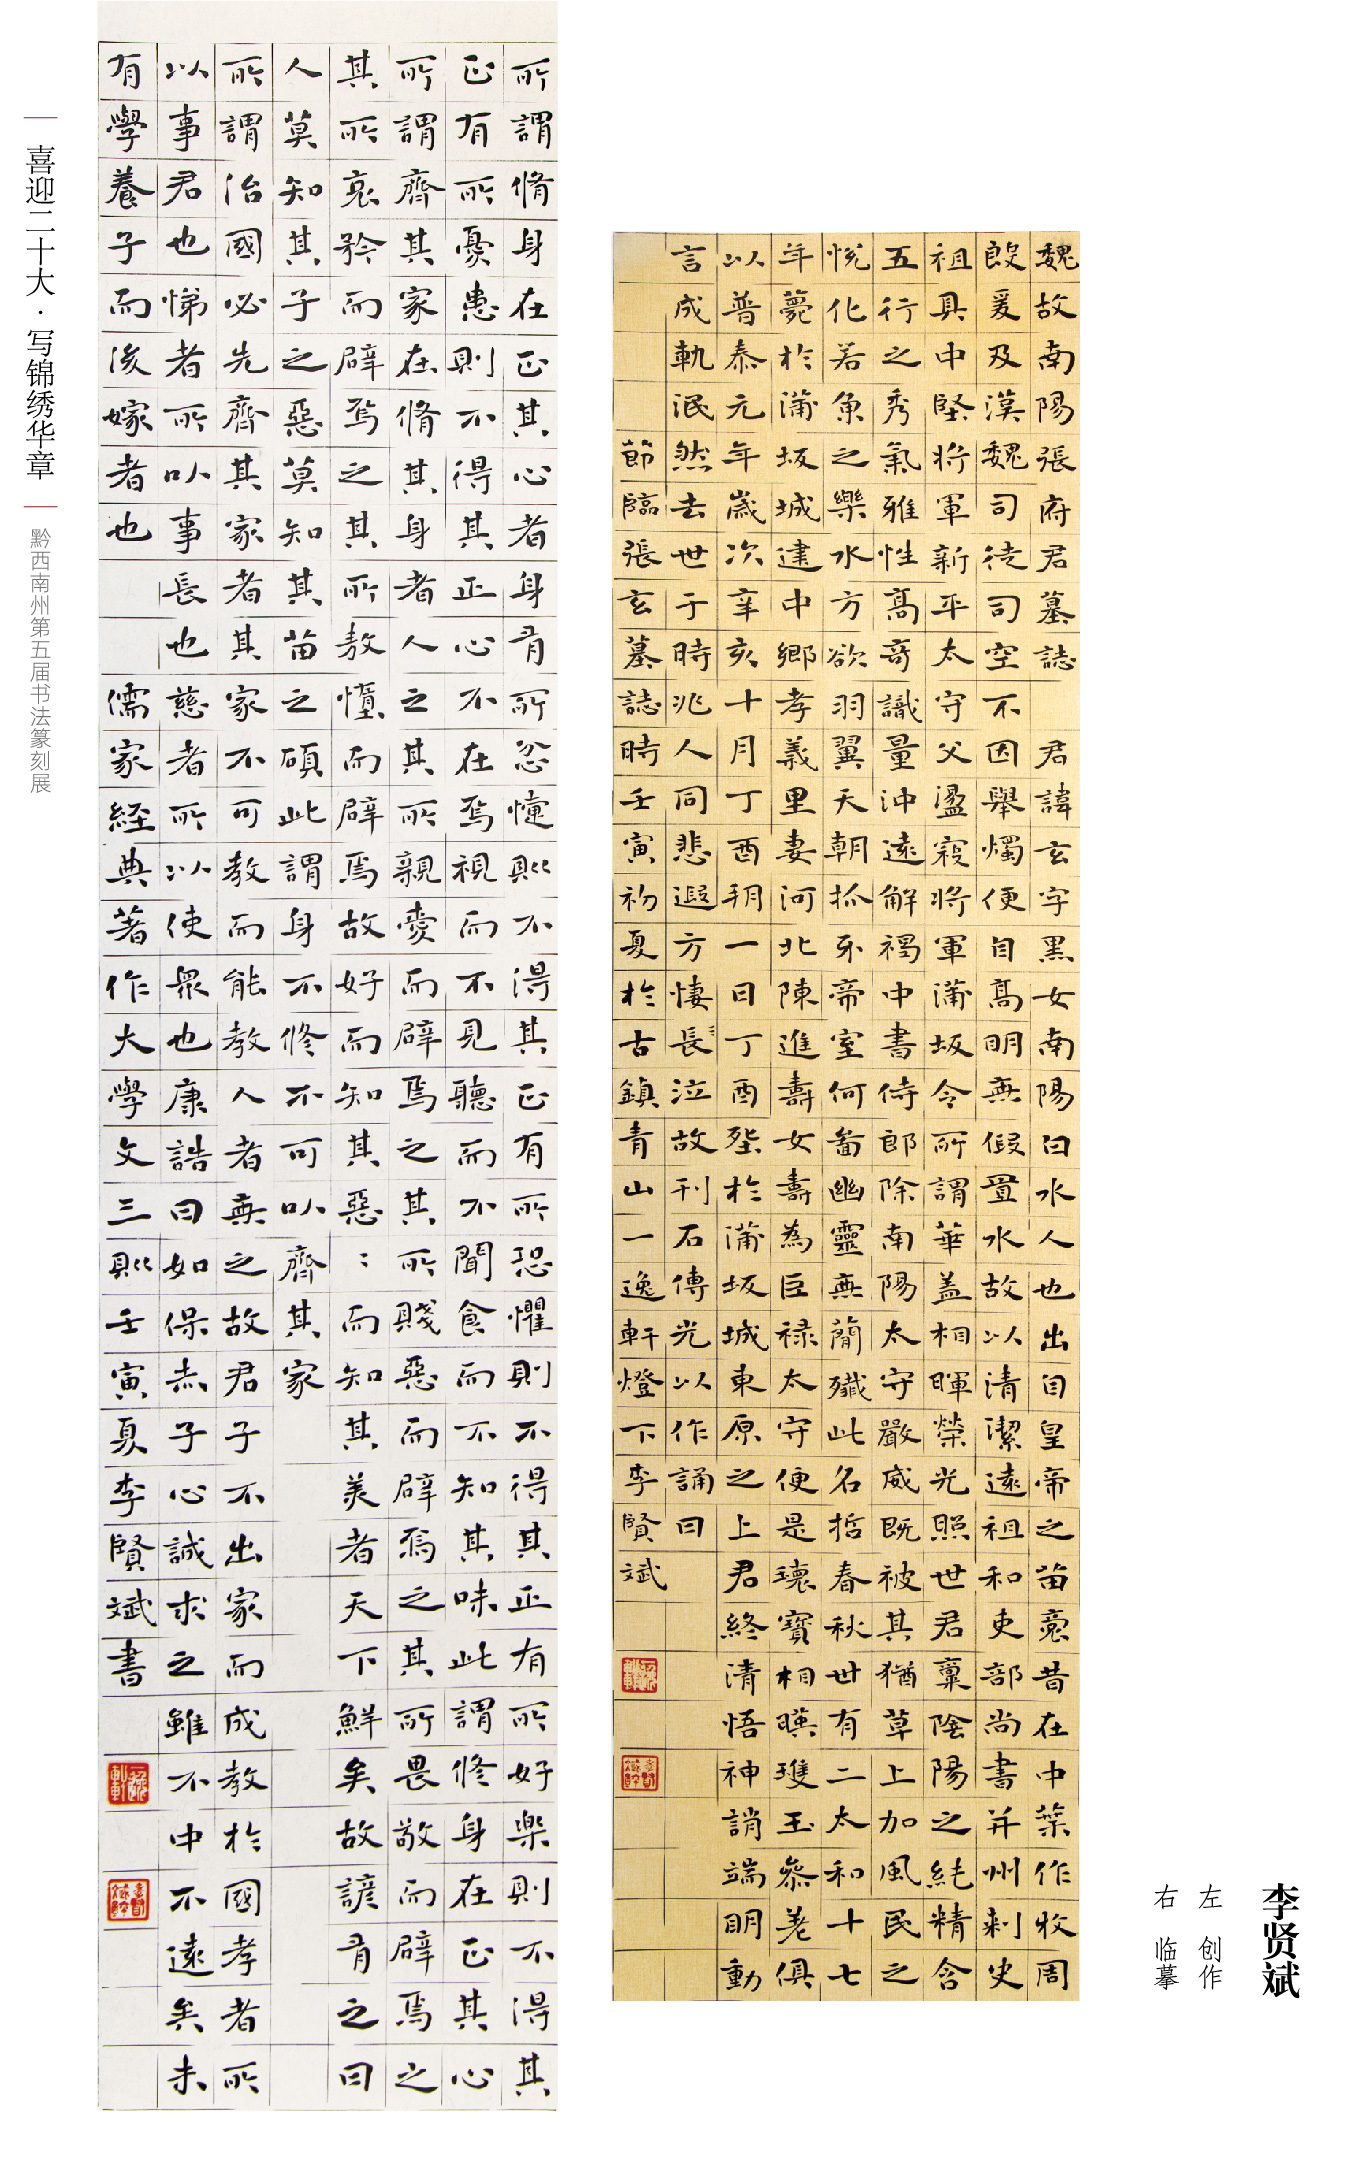 喜迎二十大·写锦绣华章
黔西南州第五届书法篆刻展
所謂脩身在正其心者身有所忿懥則不得其正有所恐懼則不得其正有所好樂則不得其
正有所憂患則不得其正心不在焉視而不見聽而不聞食而不知其味此謂修身在正其心
所謂齊其家在脩其身者人之其所親愛而辟焉之其所賤惡而辟焉之其所畏敬而辟焉之
其所哀矜而辟焉之其所敖惰而辟焉故好而知其惡〻而知其美者天下鮮矣故諺有之曰
人莫知其子之惡莫知其苗之碩此謂身不修不可以齊其家
所謂治國必先齊其家者其家不可教而能教人者無之故君子不出家而成教於國孝者所
以事君也悌者所以事長也慈者所以使眾也康誥曰如保赤子心誠求之雖不中不遠矣未
有學養子而後嫁者也 儒家經典著作大學文三則壬寅夏李賢斌書
魏故南陽張府君墓誌 君諱玄字黑女南陽白水人也出自皇帝之苗裔昔在中葉作牧周
殷爰及漢魏司徒司空不因舉燭便自高明無假置水故以清潔遠祖和吏部尚書并州刺史
祖具中堅將軍新平太守父盪寇將軍蒲坂令所謂華蓋相暉榮光照世君稟陰陽之純精含
五行之秀氣雅性高奇識量沖遠解褐中書侍郎除南陽太守嚴威既被其猶草上加風民之
悅化若魚之樂水方欲羽翼天朝抓牙帝室何啚幽靈無簡殲此名哲春秋卅有二太和十七
年薨於蒲坂城建中鄉孝義里妻河北陳進壽女壽為巨祿太守便是瓌寶相暎瓊玉參差俱
以普泰元年歲次辛亥十月丁酉朔一日丁酉塟於蒲坂城東原之上君終清悟神誚端明動
言成軌泯然去世于時兆人同悲遐方悽長泣故刊石傳光以作誦曰
節臨張玄墓誌時壬寅初夏於古鎮青山一逸軒燈下李賢斌
李贤斌
左 创作
右 临摹